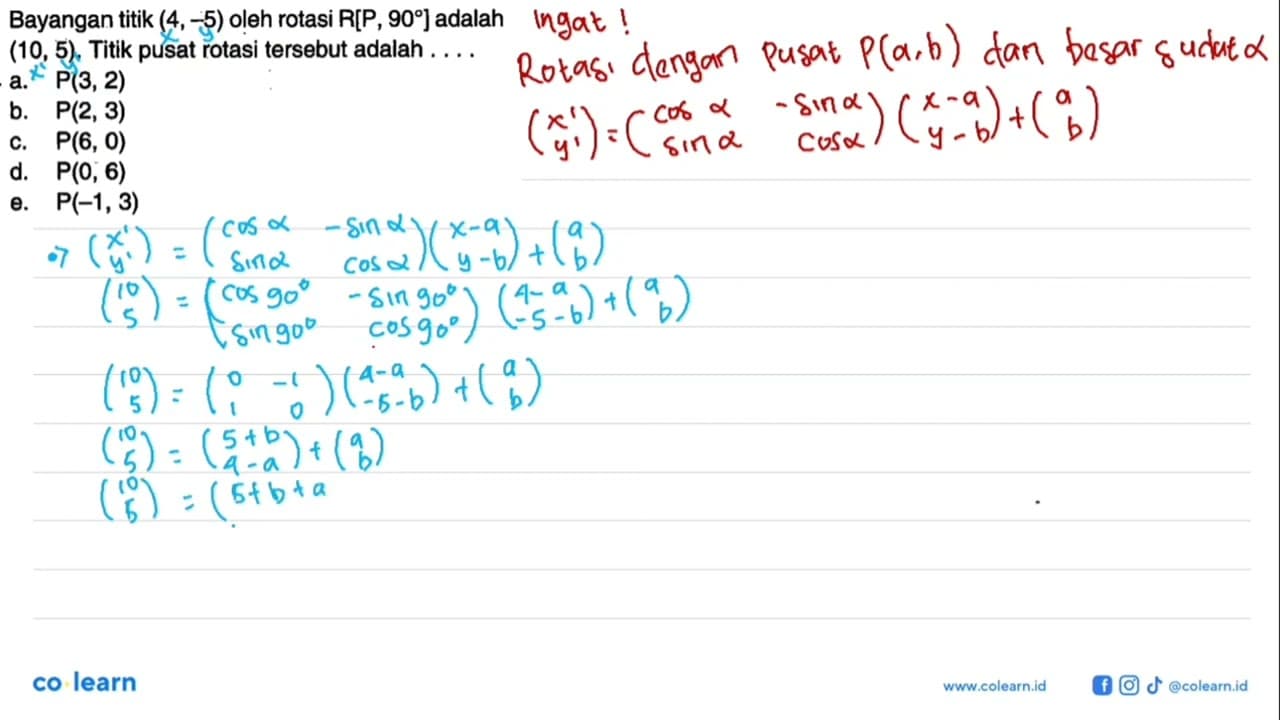 Bayangan titik (4, –5) oleh rotasi R[P, 90°] adalah
x y
(10, 5). Titik pusat rotasi tersebut adalah . . . .
x' y'
a. P(3, 2)
b. P(2, 3)
c. P(6, 0)
d. P(0, 6)
e. P(–1, 3)
Ingat !
Rotasi dengan Pusat P(a,b) dan besar sudut α
(x' y') = (cos α -sin α sin α cos α) (x-a y-b) + (a b)
•> (x' y') = (cos α -sin α sin α cos α) (x-a y-b) + (a b)
(10 5) = (cos 90° -sin 90° sin 90° cos 90°) (4-a -5-b) + (a b)
(10 5) = (0 -1 1 0) (4-a -5-b) + (a b)
(10 5) = (5+b 4-a) + (a b)
(10 5) = (5+b+a
co·learn
www.colearn.id
@colearn.id